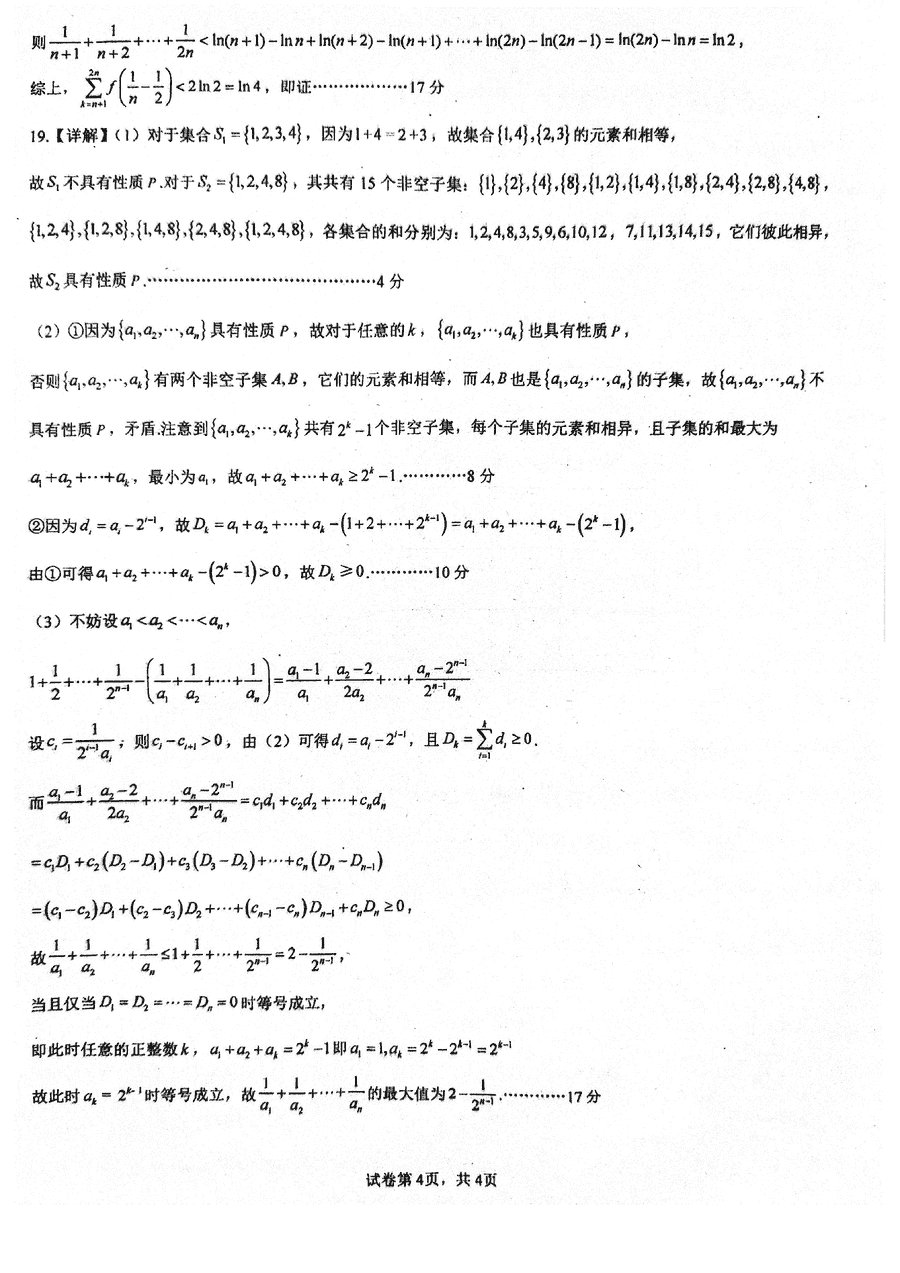 则 $\frac{1}{n+1}+\frac{1}{n+2}+\cdots+\frac{1}{2n}<\ln(n+1)-\ln n+\ln(n+2)-\ln(n+1)+\cdots+\ln(2n)-\ln(2n-1)=\ln(2n)-\ln n=\ln 2$，
综上，$\sum_{k=n+1}^{2n} f\left(\frac{1}{n}-\frac{1}{2}\right)<2\ln 2=\ln 4$，即证………………17 分
19.【详解】（1）对于集合 $S_1=\{1,2,3,4\}$，因为 $1+4=2+3$，故集合 $\{1,4\},\{2,3\}$ 的元素和相等，
故 $S_1$ 不具有性质 $P$.对于 $S_2=\{1,2,4,8\}$，其共有 15 个非空子集：$\{1\},\{2\},\{4\},\{8\},\{1,2\},\{1,4\},\{1,8\},\{2,4\},\{2,8\},\{4,8\}$，
$\{1,2,4\},\{1,2,8\},\{1,4,8\},\{2,4,8\},\{1,2,4,8\}$，各集合的和分别为：$1,2,4,8,3,5,9,6,10,12$，$7,11,13,14,15$，它们彼此相异，
故 $S_2$ 具有性质 $P$.……………………………………4 分
（2）①因为 $\{a_1,a_2,\cdots,a_n\}$ 具有性质 $P$，故对于任意的 $k$，$\{a_1,a_2,\cdots,a_k\}$ 也具有性质 $P$，
否则 $\{a_1,a_2,\cdots,a_k\}$ 有两个非空子集 $A,B$，它们的元素和相等，而 $A,B$ 也是 $\{a_1,a_2,\cdots,a_n\}$ 的子集，故 $\{a_1,a_2,\cdots,a_n\}$ 不
具有性质 $P$，矛盾.注意到 $\{a_1,a_2,\cdots,a_k\}$ 共有 $2^k-1$ 个非空子集，每个子集的元素和相异，且子集的和最大为
$a_1+a_2+\cdots+a_k$，最小为 $a_1$，故 $a_1+a_2+\cdots+a_k\ge 2^k-1$.…………8 分
②因为 $d_i=a_i-2^{i-1}$，故 $D_k=a_1+a_2+\cdots+a_k-\left(1+2+\cdots+2^{k-1}\right)=a_1+a_2+\cdots+a_k-\left(2^k-1\right)$，
由①可得 $a_1+a_2+\cdots+a_k-\left(2^k-1\right)>0$，故 $D_k\geqslant 0$.…………10 分
（3）不妨设 $a_1<a_2<\cdots<a_n$，
$1+\frac{1}{2}+\cdots+\frac{1}{2^{n-1}}-\left(\frac{1}{a_1}+\frac{1}{a_2}+\cdots+\frac{1}{a_n}\right)=\frac{a_1-1}{a_1}+\frac{a_2-2}{2a_2}+\cdots+\frac{a_n-2^{n-1}}{2^{n-1}a_n}$
设 $c_i=\frac{1}{2^{i-1}a_i}$，则 $c_i-c_{i+1}>0$，由（2）可得 $d_i=a_i-2^{i-1}$，且 $D_k=\sum_{i=1}^{k} d_i\ge 0$.
而 $\frac{a_1-1}{a_1}+\frac{a_2-2}{2a_2}+\cdots+\frac{a_n-2^{n-1}}{2^{n-1}a_n}=c_1d_1+c_2d_2+\cdots+c_nd_n$
$=c_1D_1+c_2(D_2-D_1)+c_3(D_3-D_2)+\cdots+c_n(D_n-D_{n-1})$
$=(c_1-c_2)D_1+(c_2-c_3)D_2+\cdots+(c_{n-1}-c_n)D_{n-1}+c_nD_n\ge 0$，
故 $\frac{1}{a_1}+\frac{1}{a_2}+\cdots+\frac{1}{a_n}\le 1+\frac{1}{2}+\cdots+\frac{1}{2^{n-1}}=2-\frac{1}{2^{n-1}}$，
当且仅当 $D_1=D_2=\cdots=D_n=0$ 时等号成立，
即此时任意的正整数 $k$，$a_1+a_2+a_k=2^k-1$ 即 $a_1=1,a_k=2^k-2^{k-1}=2^{k-1}$
故此时 $a_k=2^{k-1}$ 时等号成立，故 $\frac{1}{a_1}+\frac{1}{a_2}+\cdots+\frac{1}{a_n}$ 的最大值为 $2-\frac{1}{2^{n-1}}$.…………17 分
试卷第 4页，共 4页